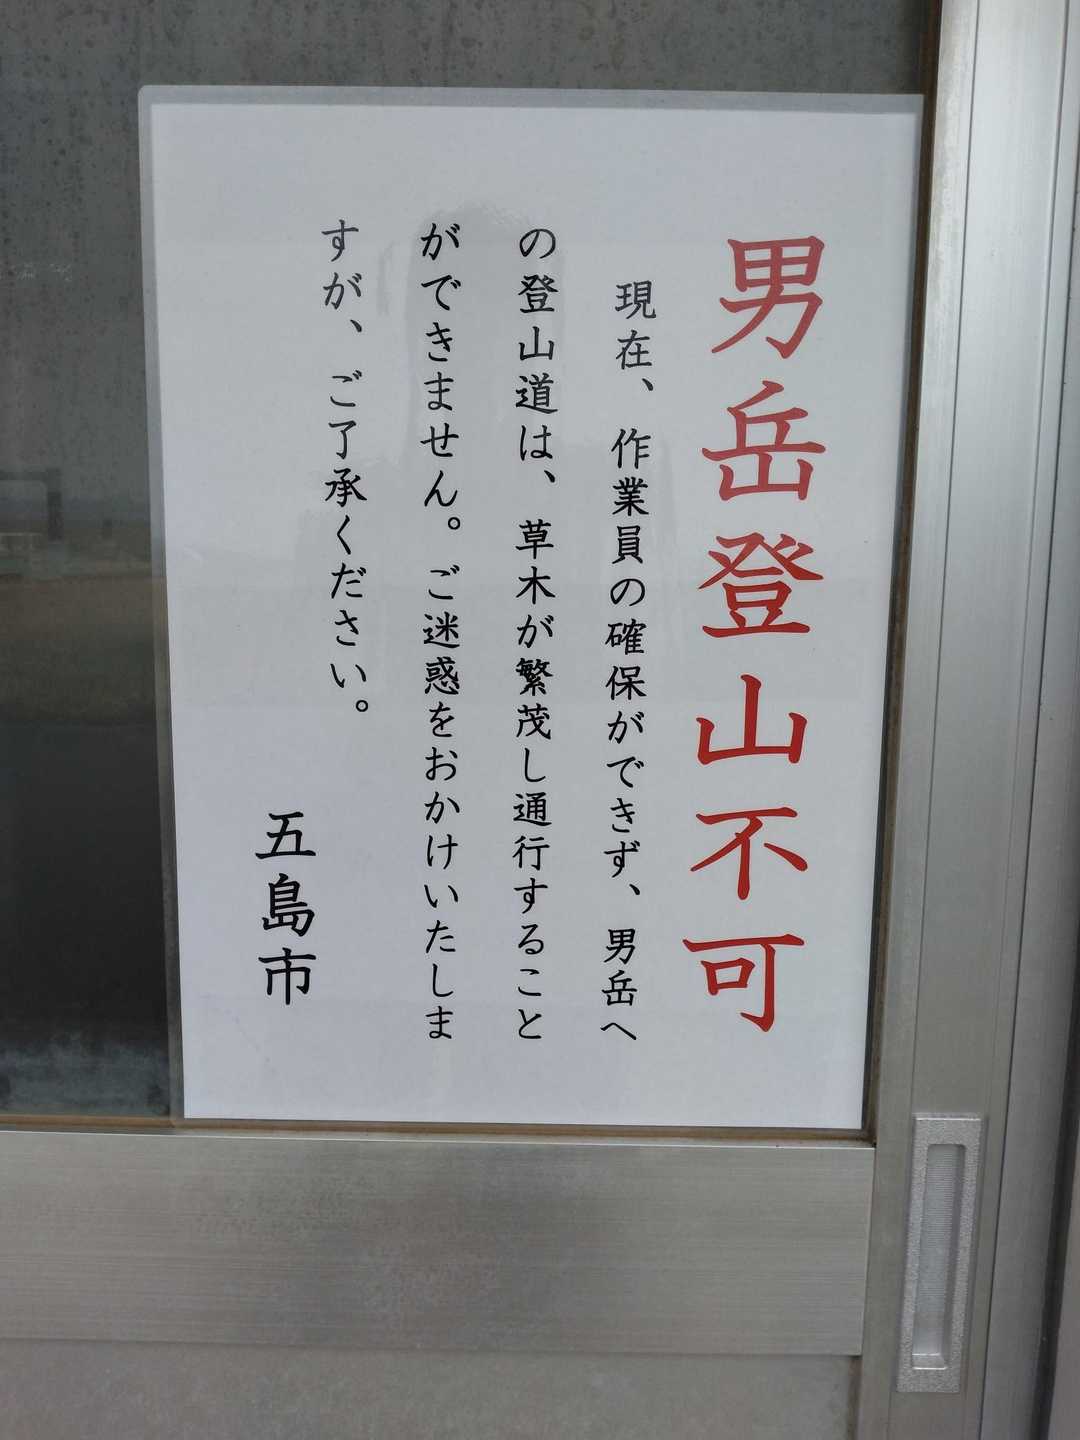 男岳登山不可
現在、作業員の確保ができず、男岳へ
の登山道は、草木が繁茂し通行すること
ができません。ご迷惑をおかけいたしま
すが、ご了承ください。
五島市